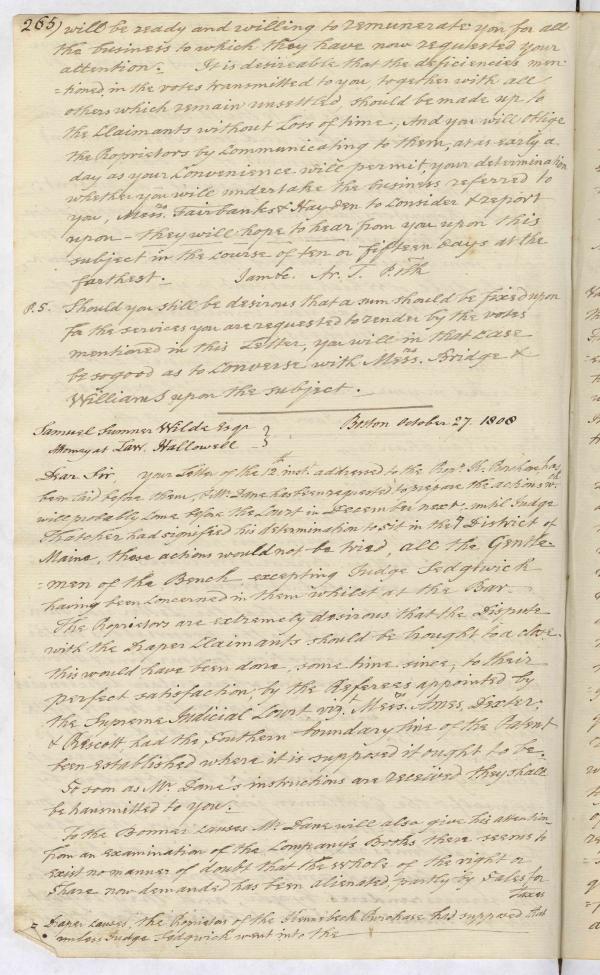 265) will be ready and willing to remunerate you for all
the business to which they have now requested your
attention. It is desireable that the deficiencies men
=tioned in the votes transmitted to you together with all
others which remain unsettled, should be made up to
the Claimants without Loss of time, And you will oblige
the Proprietors by Communicating to them, at as early a
day as your Convenience will permit, your determination
whether you will undertake the business referred to
you, Messrs. Fairbanks & Hayden to Consider & report
upon - they will hope to hear from you upon this
subject in the Course of ten or fifteen days at the
farthest. I am &c. Ar. T.
P.S. Should you still be desirous that a sum should be fixed upon
for the services you are requested to render by the votes
mentioned in this Letter, you will in that Case
be so good as to Converse with Messrs. Bridge &
Williams upon the subject.
Samuel Sumner Wilde Esqr } Boston October 27. 1808
Attorney at Law. Hallowell }
Dear Sir your Letter of the 12th inst. addressed to the has
been laid before them, & Mr. Dane has been requested to prepare the actions wch.
will probably Come before the Court in December next - until Judge
Thatcher had signified his determination to sit in the District of
Maine, these actions would not be tried, all the Gentle=
=men of the Bench excepting Judge Sedgwick
having been Concerned in them whilst at the Bar.
The Proprietors are extremely desirous that the Dispute
with the Draper Claimants should be brought to a close.
this would have been done, some time since, to their
perfect satisfaction, by the Referees appointed by
the Supreme Judicial Court vizt. Messrs. Ames, Dexter,
& Prescott had the Southern boundary line of the Patent
been established where it is supposed it ought to be.
So soon as Mr Dane's instructions are received they shall
be transmitted to you.
To the Bonner Causes Mr. Dane will also give his attention
from an examination of the Company's Books there seems to
exist no manner of doubt that the whole of the right or
Share now demanded has been alienated, partly by Sales for
Taxes
= Draper Causes, the Proprietors of the Kennebeck Purchase had supposed that
unless Judge Sedgwick went into the